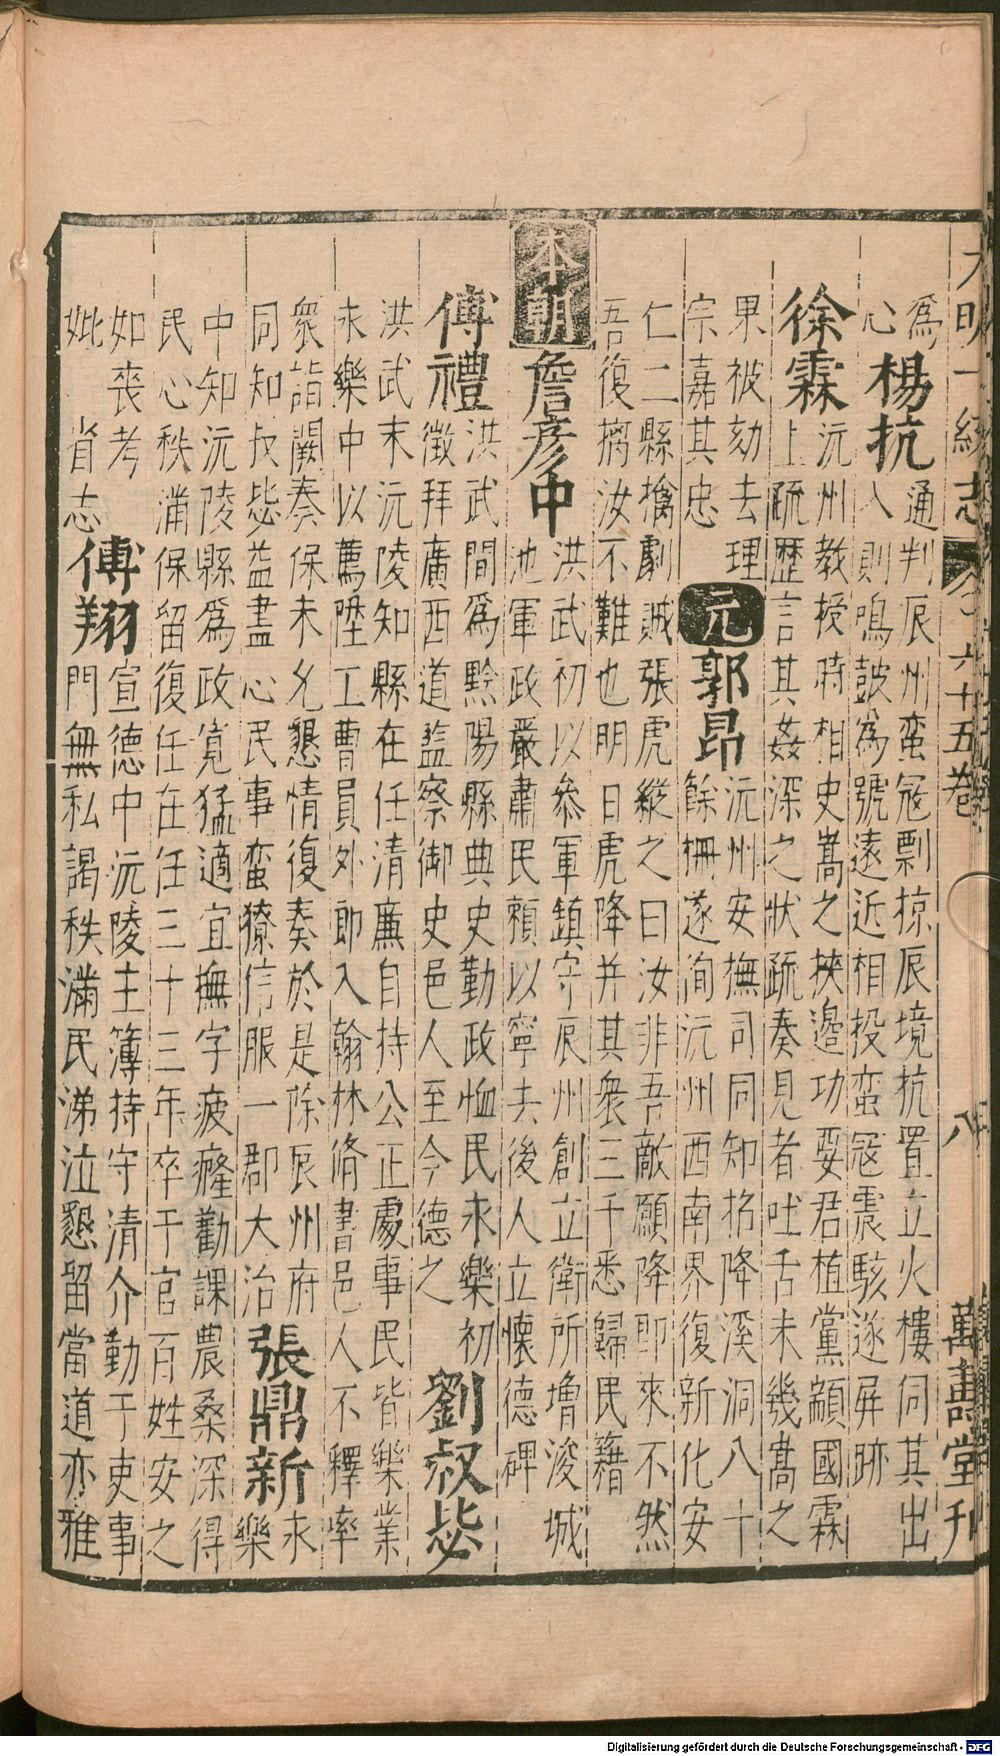 大明一統志 六十五卷 八 萬壽堂刊
爲
心
楊抗
通判辰州蛮冦剽掠辰境抗置立火樓伺其出
入則鳴皷為號遠近相投蛮冦震駭遂屏跡
徐霖
沅州教授時相史嵩之挾邉功要君植黨顓國霖
上疏歷言其姦深之狀疏奏見者吐舌未幾嵩之
果被劾去理
宗嘉其忠
元
郭昂
沅州安撫司同知招降溪洞八十
餘柵遂洵沅州西南界復新化安
仁二縣擒劇賊張虎縱之曰汝非吾敵願降即來不然
吾復擒汝不難也明日虎降并其衆三千悉歸民籍
本朝
詹彦中
洪武初以叅軍鎮守辰州創立衛所増浚城
池軍政嚴肅民頼以寧去後人立懷德碑
傅禮
洪武間爲黔陽縣典史勤政恤民永樂初
徵拜廣西道監察御史邑人至今德之
劉叔毖
洪武末沅陵知縣在任清廉自持公正處事民皆樂業
永樂中以薦陞工曹員外郎入翰林脩書邑人不釋率
衆詣闕奏保未允懇情復奏於是除辰州府
同知叔毖益盡心民事蛮獠信服一郡大治
張鼎新
永
樂
中知沅陵縣爲政寛猛適宜撫字疲癃勸課農桑深得
民心秩滿保留復任在任三十三年卒于官百姓安之
如喪考
妣 省志
傅翔
宣德中沅陵主簿持守清介勤于吏事
門無私謁秩滿民涕泣懇留當道亦雅
Digitalisierung gefördert durch die Deutsche Forschungsgemeinschaft - DFG